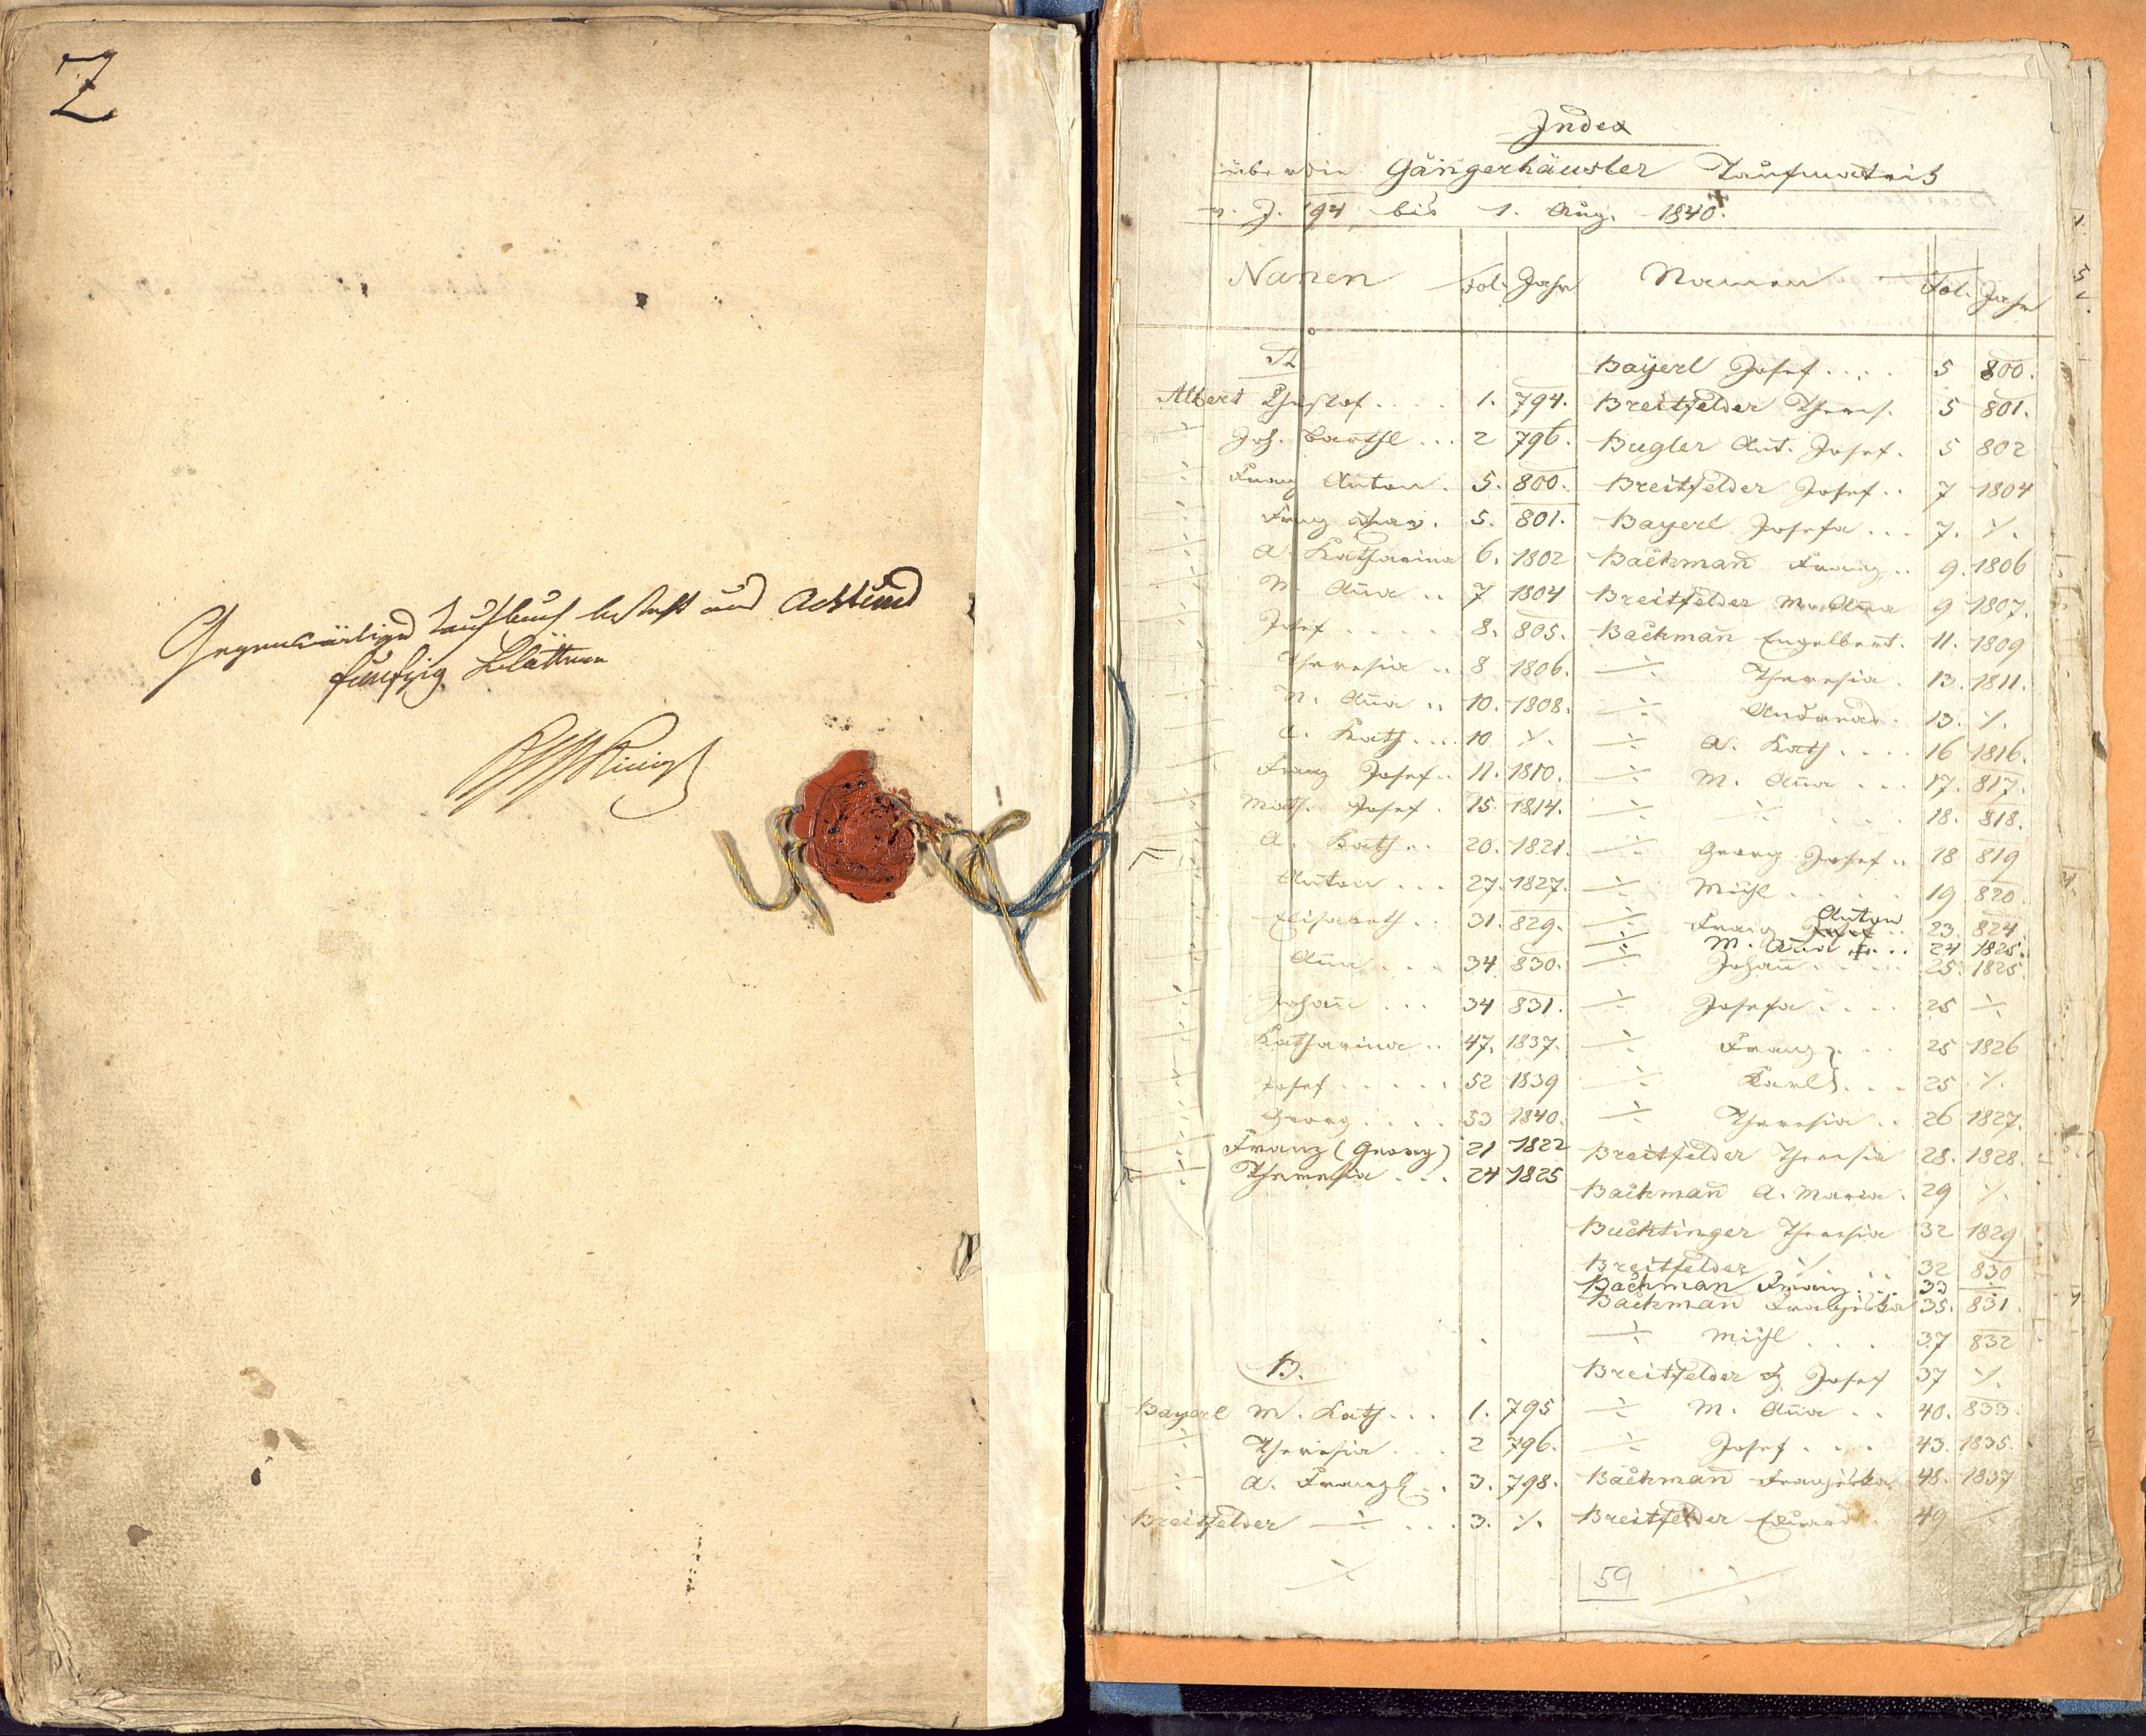 Z
Gegenwärtiges Taufbuch besteht aus Achtund
fünfzig Blättern
Index
über die Gängerhäusler Taufmatrik
v. J. 794 bis 1. Aug. 1840.
Namen Fol. Jahr
A
Albert Christof .... 1. 794.
÷ Joh. Barthl ... 2 796.
÷ Franz Anton . 5. 800.
÷ Franz Xav. 5. 801.
÷ A. Katharina 6. 1802
÷ M. Aña .. 7 1804
÷ Josef ..... 8. 805.
÷ Theresia .. 8 1806.
÷ M. Aña .. 10. 1808.
÷ A. Kath. ... 10 ÷.
÷ Franz Josef .. 11. 1810.
÷ Math. Josef . 15. 1814.
÷ A. Kath .. 20. 1821.
÷ Anton ... 27. 1827.
÷ Elisabeth .. 31. 829.
÷ Aña .... 34 830.
÷ Johañ ... 34 831.
÷ Katharina .. 47. 1837.
÷ Josef ..... 52 1839
÷ Georg .... 53 1840.
÷ Franz (Georg) 21 1822
÷ Theresia ... 24 1825
B.
Bayerl M. Kath... 1. 795
÷ Theresia ... 2 796.
÷ A. Franzl .. 3. 798.
Breitfelder ÷ ... 3. ÷.
÷
Namen Fol. Jahr
Bayerl Josef .... 5 800.
Breitfelder Theres. 5 801.
Bugler Ant. Josef. 5 802
Breitfelder Josef .. 7 1804
Bayerl Josefa ... 7. ÷.
Bachmañ Franz .. 9. 1806
Breitfelder M. Aña 9 1807.
Bachmañ Engelbert. 11. 1809
÷ Theresia . 13. 1811.
÷ Andreas . 13. ÷.
÷ A. Kath .... 16 1816.
÷ M. Aña ... 17. 817.
÷ ÷ ... 18. 818.
÷ Georg Josef .. 18 819
÷ Michl .... 19 820
÷ Franz Anton .. 23. 824.
÷ M. Aña .... 24 1825.
÷ Johañ .... 25. 1825.
÷ Josefa .... 25 ÷
÷ Franz ... 25 1826
÷ Karl ... 25 ÷.
÷ Theresia .. 26 1827.
Breitfelder Theresia 28. 1828.
Bachmañ A. Maria . 29 ÷.
Buchtinger Theresia 32 1829
Breitfelder ÷ .. 32 830
Bachman Franz ... 33 ÷
Bachmañ Franziska 35. 831.
÷ Michl .... 37 832
Breitfelder Josef 37 ÷.
÷ M. Aña .. 40. 833.
÷ Josef .... 43. 1835.
Bachmañ Franziska 48. 1837
Breitfelder Eduard 49 ÷
59 ÷